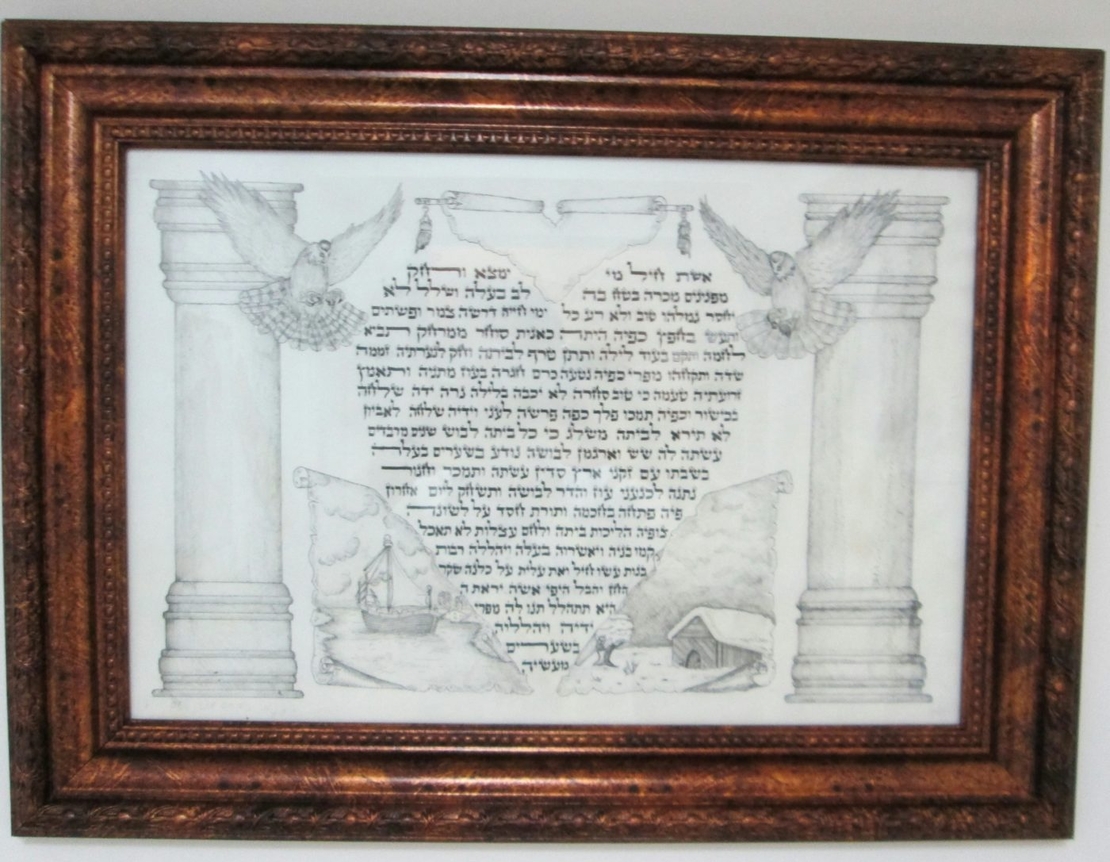 אשת חיל מי ימצא ורחק
מפנינים מכרה בטח בה לב בעלה ושלל לא
יחסר גמלתהו טוב ולא רע כל ימי חייה דרשה צמר ופשתים
ותעש בחפץ כפיה היתה כאנית סוחר ממרחק תביא
לחמה ותקם בעוד לילה ותתן טרף לביתה וחק לנערתיה זממה
שדה ותקחהו מפרי כפיה נטעה כרם חגרה בעוז מתניה ותאמץ
זרועתיה טעמה כי טוב סחרה לא יכבה בלילה נרה ידה שלחה
בכישור וכפיה תמכו פלך כפה פרשה לעני וידיה שלחה לאביון
לא תירא לביתה משלג כי כל ביתה לבוש שנים מרבדים
עשתה לה שש וארגמן לבושה נודע בשערים בעלה
בשבתו עם זקני ארץ סדין עשתה ותמכר וחגור
נתנה לכנעני עוז והדר לבושה ותשחק ליום אחרון
פיה פתחה בחכמה ותורת חסד על לשונה
צופיה הליכות ביתה ולחם עצלות לא תאכל
קמו בניה ויאשרוה בעלה ויהללה רבות
בנות עשו חיל ואת עלית על כלנה שקר
החן והבל היפי אשה יראת ה
היא תתהלל תנו לה מפרי
ידיה ויהללוה
בשערים
מעשיה